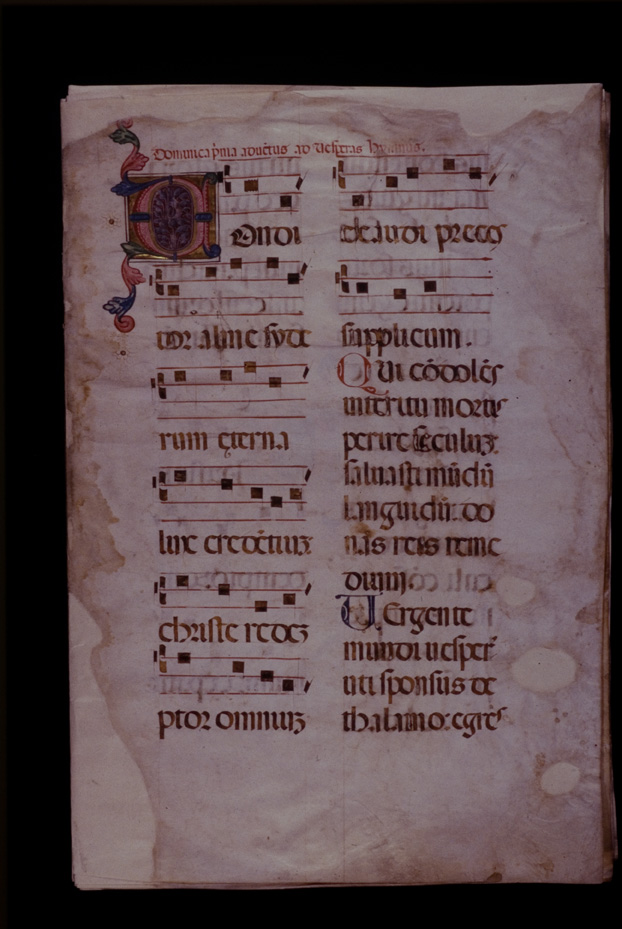 Dominica p̄ma aduētus ad Uesp̄ras hymnus.
Ondi
tor alme syde
rum eterna
lux credētiuꝫ
christe redeꝫ
ptor omniuꝫ
exaudi preces
supplicum.
Qui cōdolēs
interitu mortis
perire seculuꝫ
saluasti mūdū
languidū do
nas reis reme
dium
Uergente
mundi uesper̄
uti sponsus de
thalamo egres